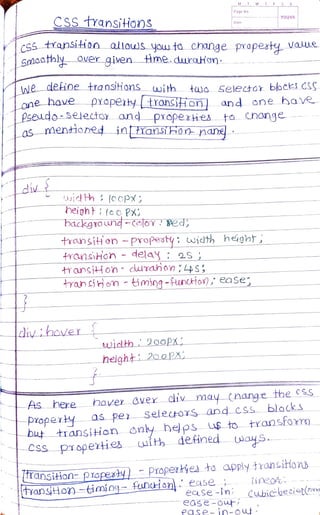 M T W T F S S
Page No.:
Date:
YOUVA
CSS transitions
CSS transition allows you to change property value
smoothly over given time duration.
We define transitions with two selector blocks css
one have property [transition] and one have
Pseudo-selector and properties to change
as mentioned in [transition name].
div {
width : 100px;
height : 100px;
background-color : Red;
transition-property : width height;
transition-delay : 2s;
transition-duration : 4s;
transition-timing-function: ease;
}
div:hover {
width : 200px;
height : 200px;
}
As here hover over div may change the css
property as per selectors and css blocks
but transition only helps us to transform
CSS properties with defined ways.
[transition-property] - Properties to apply transitions
[transition-timing-function] : ease ; linear;
ease-in;
ease-out;
ease-in-out;